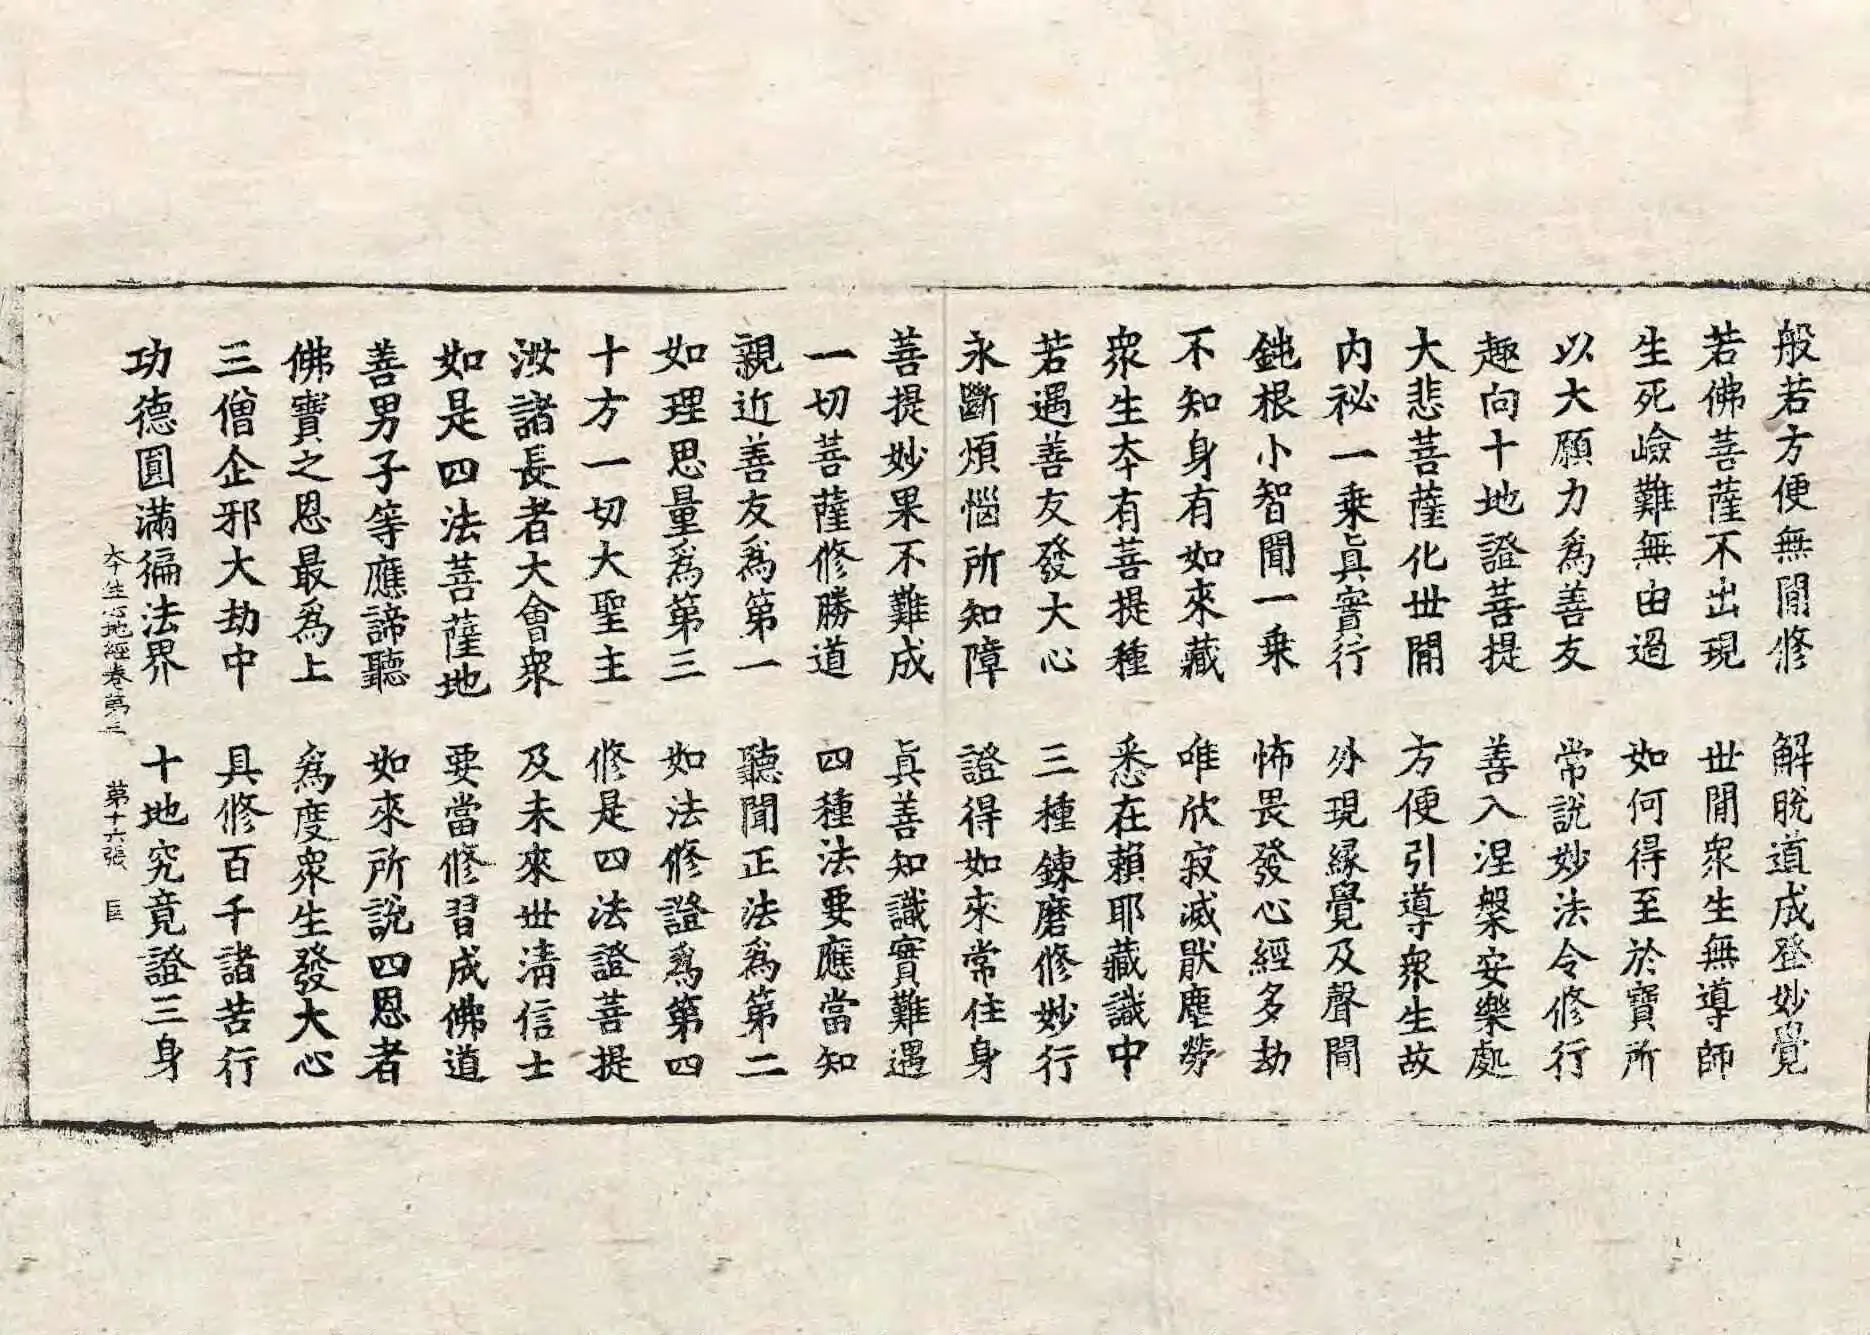 般若方便無間修　解脫道成登妙覺
若佛菩薩不出現　世間衆生無導師
生死嶮難無由過　如何得至於寶所
以大願力爲善友　常說妙法令修行
趣向十地證菩提　善入涅槃安樂處
大悲菩薩化世間　方便引導衆生故
內祕一乘眞實行　外現緣覺及聲聞
鈍根小智聞一乘　怖畏發心經多劫
不知身有如來藏　唯欣寂滅猒塵勞
衆生夲有菩提種　悉在賴耶藏識中
若遇善友發大心　三種鍊磨修妙行
永斷煩惱所知障　證得如來常住身
菩提妙果不難成　眞善知識實難遇
一切菩薩修勝道　四種法要應當知
親近善友爲第一　聽聞正法爲第二
如理思量爲第三　如法修證爲第四
十方一切大聖主　修是四法證菩提
汝諸長者大會衆　及未來世淸信士
如是四法菩薩地　要當修習成佛道
善男子等應諦聽　如來所說四恩者
佛寶之恩最爲上　爲度衆生發大心
三僧企邪大劫中　具修百千諸苦行
功德圓滿徧法界　十地究竟證三身
夲生心地經卷第三　第十六張　臣